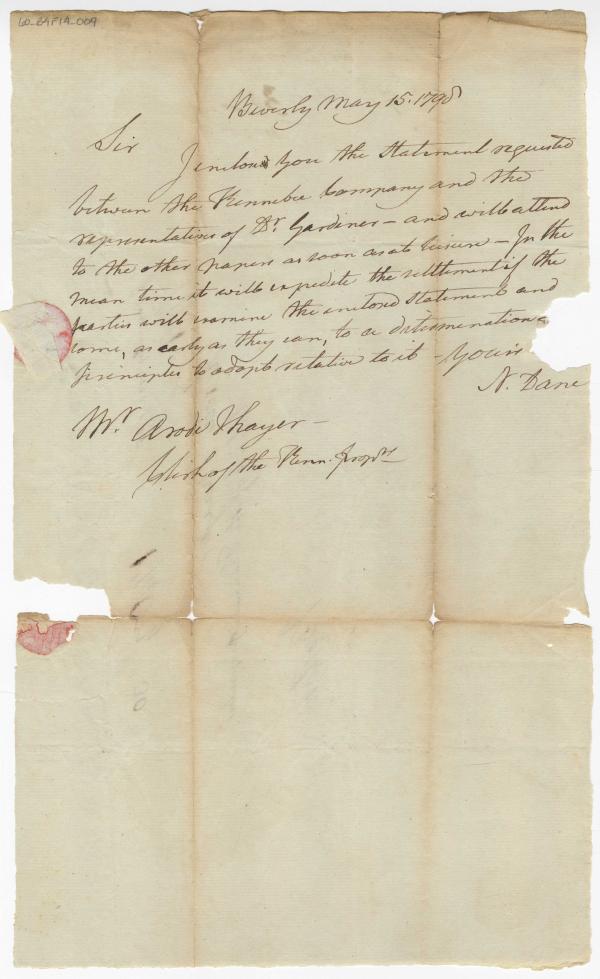 60-64F1A-009
Beverly May 15. 1798
Sir
I enclose you the Statement requested
between the Kennebec Company and the
representatives of Dr. Gardiner - and will attend
to the other papers as soon as at leisure - In the
mean time it will expedite the settlement if the
parties will examine the enclosed Statement and
come, as early as they can, to a determination
principles to adopt relative to it - Yours
N. Dane
Mr. Arodi Thayer -
Clerk of the Kenn. Proprs